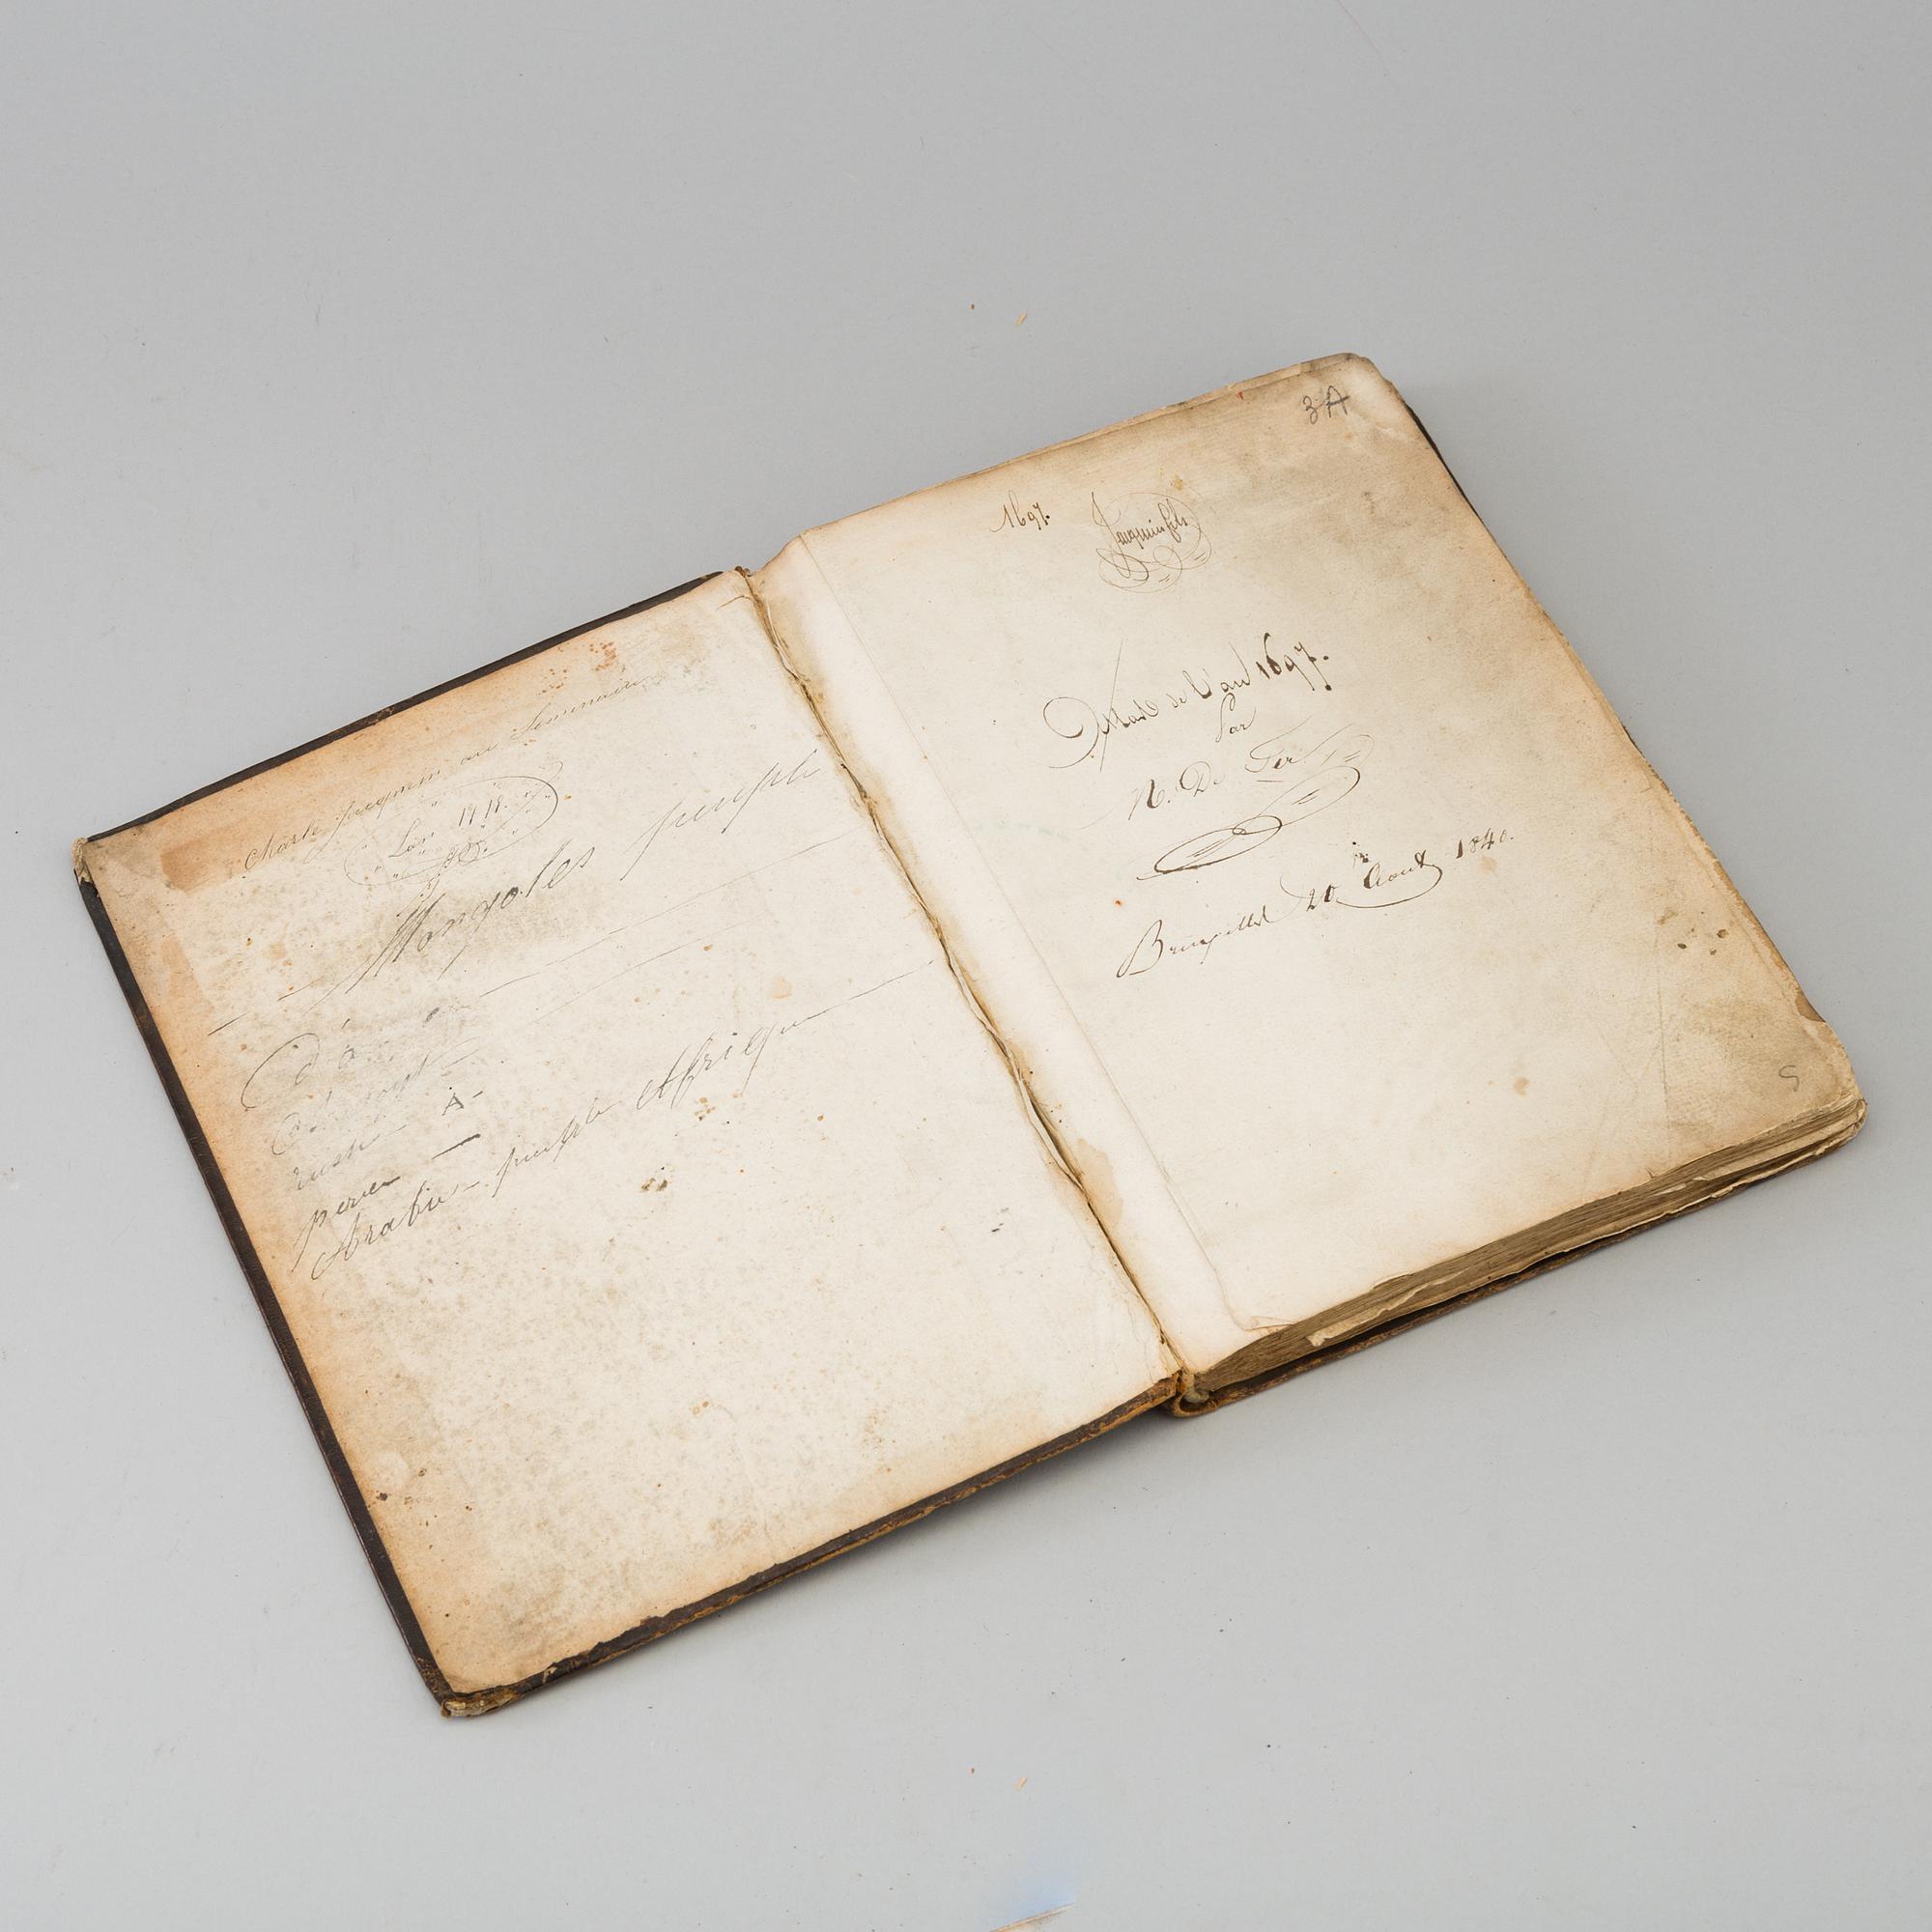 Charle Jacqmin au Seminaire
Lan
Mongoles peuple
A-
perse
Arabie - peuple Afrique
3A
1697. Jacqmin fils
Atlas de l'an 1697.
Par
N. De Fer
Bruxelles 20 Aout 1840.